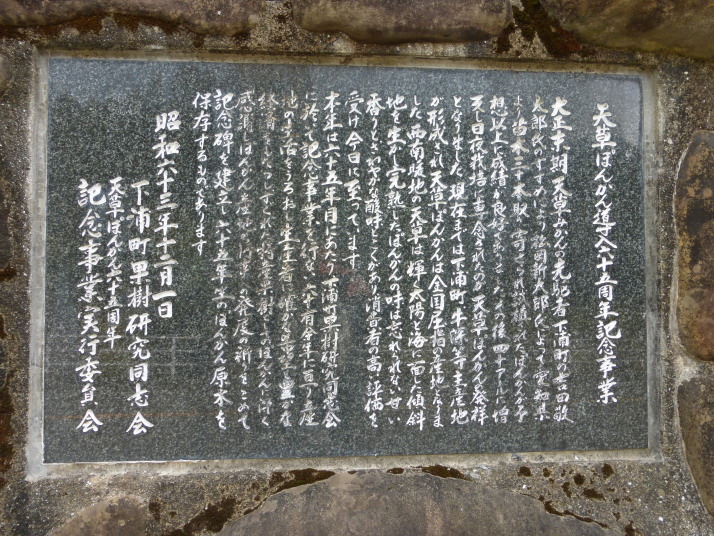 天草ぽんかん導入六十五周年記念事業
大正末期 天草みかんの先駆者 下浦町の吉田敬
太郎氏のすすめにより 松岡新太郎氏によって 愛知県
より苗木三十本取り寄せられ試植されたぽんかんが予
想以上に成績が良好でありました その後 四十アールに増
天草ぽんかん発祥
となりました 現在までは下浦町 牛深等主産地
が形成され 天草ぽんかんは全国屈指の産地となりま
した 西南暖地の天草は輝く太陽と海に面した傾斜
地を生かし完熟したぽんかんの味は忘れられない甘い
香りとさわやかな酸味とこくがあり消費者の高い評価を
受け今日に至っています
本年は六十五年目にあたり下浦町果樹研究同志会
に於て記念事業を行い 六十有余年に亘り産
地の生活をうるおし生産者に確かな
ぽんかんに深く
感謝しぽんかん産地 の発展の祈りをこめて
記念碑を建立し六十五年生のぽんかん原木を
保存するものであります
昭和六十三年十二月一日
下浦町果樹研究同志会
天草ぽんかん六十五周年
記念事業実行委員会